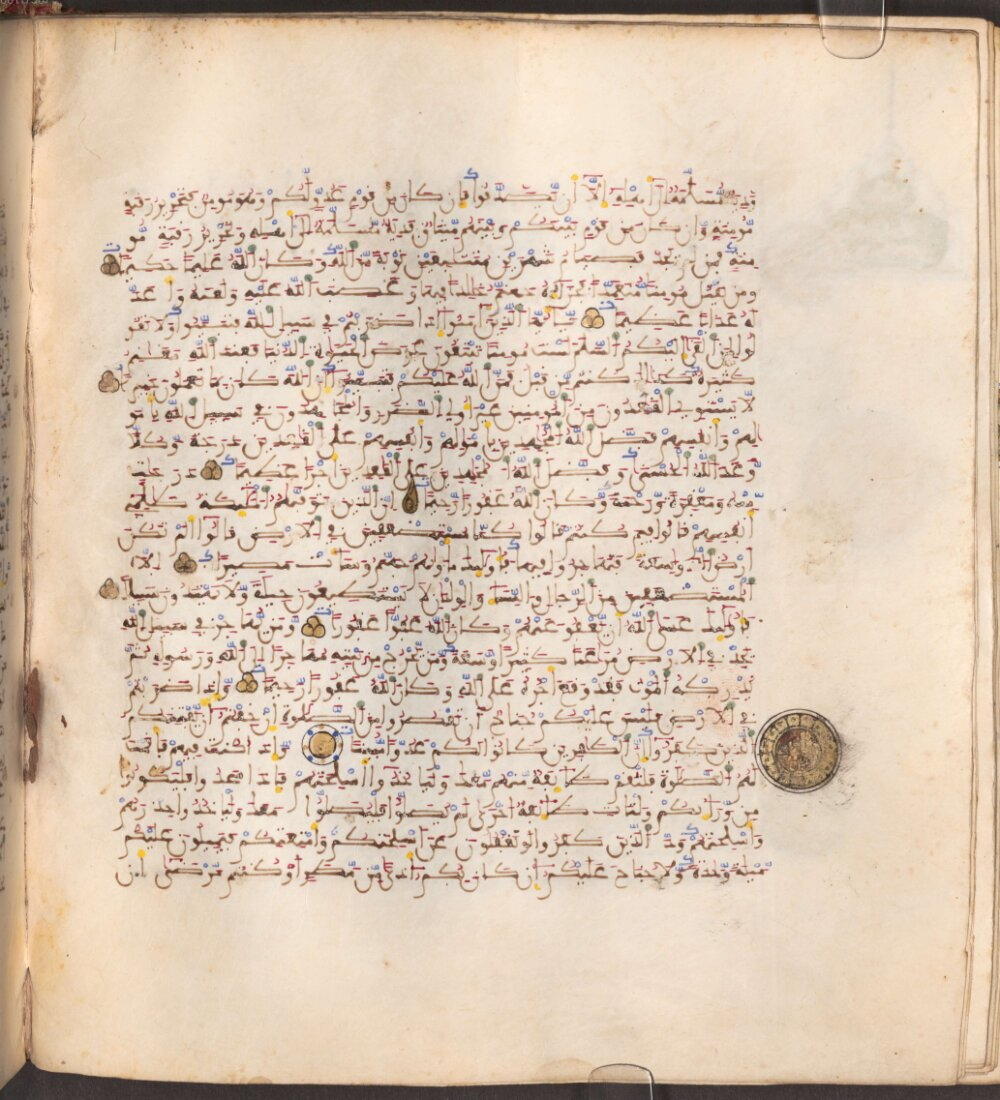 ودية مسلمة إلى أهله إلا أن يصدقوا فإن كان من قوم عدو لكم وهو مومن فتحرير رقبة
مومنة وإن كان من قوم بينكم وبينهم ميثاق فدية مسلمة إلى أهله وتحرير رقبة مو
منة فمن لم يجد فصيام شهرين متتابعين توبة من الله وكان الله عليما حكيما
ومن يقتل مومنا متعمدا فجزاؤه جهنم خالدا فيها وغضب الله عليه ولعنه وأعد
له عذابا عظيما يأيها الذين ءامنوا إذا ضربتم في سبيل الله فتبينوا ولا تقو
لوا لمن ألقى إليكم السلم لست مومنا تبتغون عرض الحيوة الدنيا فعند الله مغانم
كثيرة كذلك كنتم من قبل فمن الله عليكم فتبينوا إن الله كان بما تعملون خبيرا
لا يستوي القعدون من المومنين غير أولي الضرر والمجهدون في سبيل الله بأمو
لهم وأنفسهم فضل الله المجهدين بأمولهم وأنفسهم على القعدين درجة وكلا
وعد الله الحسنى وفضل الله المجهدين على القعدين أجرا عظيما درجت
منه ومغفرة ورحمة وكان الله غفورا رحيما إن الذين توفيهم الملئكة ظالمي
أنفسهم قالوا فيم كنتم قالوا كنا مستضعفين في الأرض قالوا ألم تكن
أرض الله وسعة فتهاجروا فيها فأولئك مأويهم جهنم وساءت مصيرا إلا
المستضعفين من الرجال والنساء والولدان لا يستطيعون حيلة ولا يهتدون سبيلا
فأولئك عسى الله أن يعفو عنهم وكان الله عفوا غفورا ومن يهاجر في سبيل الله
يجد في الأرض مراغما كثيرا وسعة ومن يخرج من بيته مهاجرا إلى الله ورسوله ثم
يدركه الموت فقد وقع أجره على الله وكان الله غفورا رحيما وإذا ضربتم
في الأرض فليس عليكم جناح أن تقصروا من الصلوة إن خفتم أن يفتنكم
الذين كفروا إن الكافرين كانوا لكم عدوا مبينا وإذا كنت فيهم فأقمت
لهم الصلوة فلتقم طائفة منهم معك وليأخذوا أسلحتهم فإذا سجدوا فليكونوا
من ورائكم ولتأت طائفة أخرى لم يصلوا فليصلوا معك وليأخذوا حذرهم
وأسلحتهم ود الذين كفروا لو تغفلون عن أسلحتكم وأمتعتكم فيميلون عليكم
ميلة وحدة ولا جناح عليكم إن كان بكم أذى من مطر أو كنتم مرضى أن